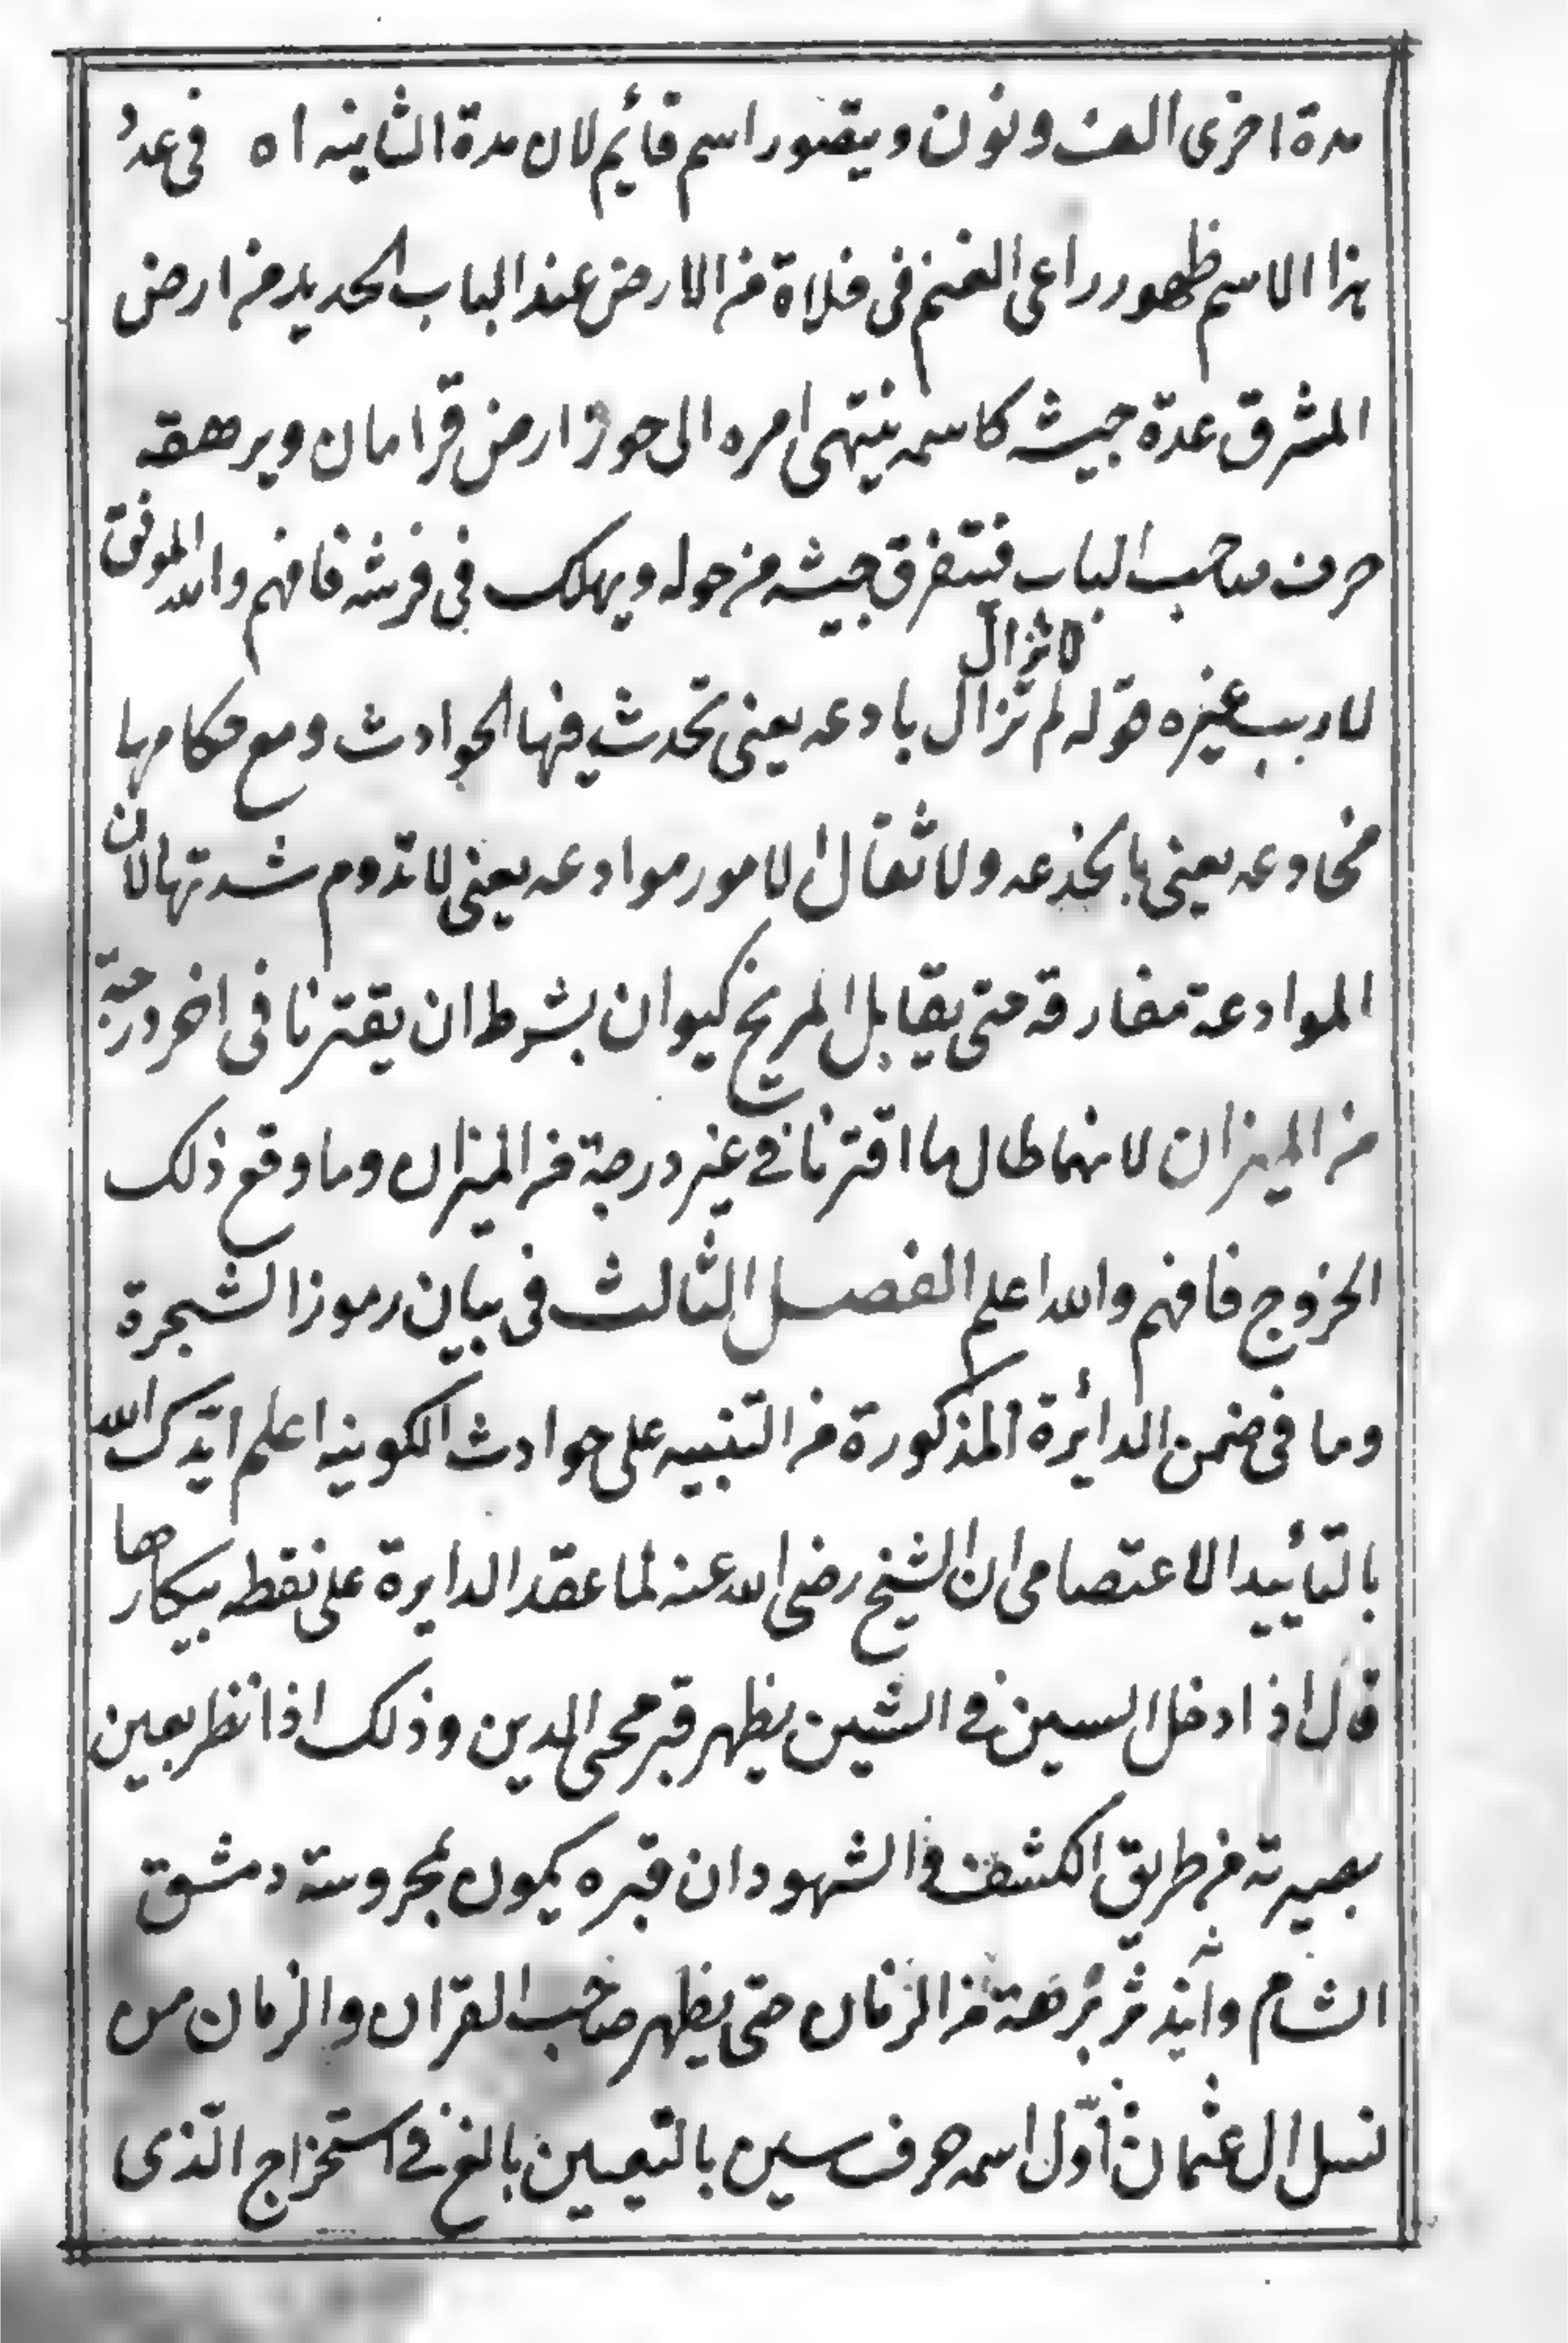 مدة اخرى الف ونون ويقصور اسم قائيم لان مدة الثانيه اه فى عدد
هذا الاسم ظهور راعى الغنم فى فلاة من الارض عند الباب الحديد من ارض
المشرق عدة جيشه كاسمه ينتهى امره الى حوز ارض قرامان ويرهقه
حرف صاحب الباب فيتفرق جيشه من حوله ويهلك فى فرشه فافهم والله الموفق
لا تزال
لا رب غيره قوله لم تزال بادعه يعنى تحدث فيها الحوادث ومع حكامها
مخادعه يعنى بالخدعه ولا ثقال الامور موادعه يعنى لا تدوم شدتها لان
الموادعة مفارقة متى يقابل المريخ كيوان بشرط ان يقترنا فى اخر درجة
من الميزان لانهما طال ما اقترنا فى غير درجة من الميزان وما وقع ذلك
الخروج فافهم والله اعلم الفصل الثالث فى بيان رموز الشجرة
وما فى ضمن الدائرة المذكورة من التنبيه على حوادث الكونيه اعلم ايّدك الله
بالتأييد الاعتصامى ان الشيخ رضى الله عنه لما عقد الدايرة على نقطه بيكارها
قال اذا دخل السين فى الشين يظهر قبر محى الدين وذلك اذا نظر بعين
بصيرته من طريق الكشف والشهود ان قبره يكون بمحروسة دمشق
الشام وانه يندثر برهة من الزمان حتى يظهر صاحب القران والزمان من
نسل ال عثمان اوّل اسمه حرف سين بالتعيين بالغ فى استخراج الّذى